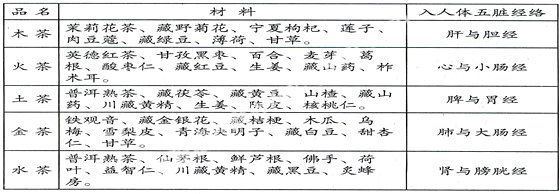 品名 材料 入人体五脏经络
木茶 茉莉花茶、藏野菊花、宁夏枸杞、莲子、 肝与胆经
肉豆蔻、藏绿豆、薄荷、甘草。
火茶 英德红茶、甘孜黑枣、百合、麦芽、葛 心与小肠经
根、酸枣仁、藏红豆、生姜、藏山药、柞
木耳。
土茶 普洱熟茶、藏茯苓、藏黄豆、山楂、藏山 脾与胃经
药、川藏黄精、生姜、陈皮、核桃仁。
金茶 铁观音、藏金银花、藏桔梗、木瓜、乌 肺与大肠经
梅、雪梨皮、青海决明子、藏白豆、甜杏
仁、甘草。
水茶 普洱熟茶、仙茅根、鲜芦根、佛手、荷 肾与膀胱经
叶、益智仁、川藏黄精、藏黑豆、炙蜂
房。